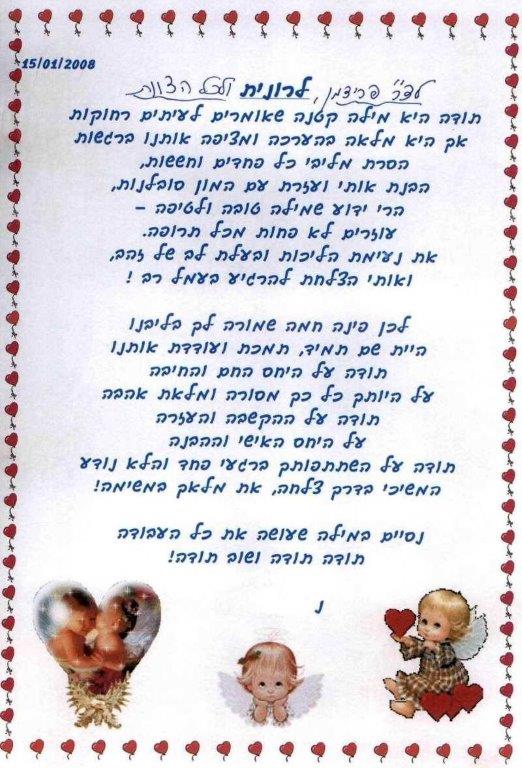 15/01/2008
לד"ר פרידמן, לרונית ולכל הצוות
תודה היא מילה קטנה שאומרים לעיתים רחוקות
אך היא מלאה בהערכה ומציפה אותנו ברגשות
הסרת מליבי כל פחדים וחששות,
הבנת אותי ועזרת עם המון סובלנות,
הרי ידוע שמילה טובה ולטיפה –
עוזרים לא פחות מכל תרופה.
את נעימת הליכות ובעלת לב של זהב,
ואותי הצלחת להרגיע בעמל רב !
לכן פינה חמה שמורה לך בליבנו
היית שם תמיד, תמכת ועודדת אותנו
תודה על היחס החם והחיבה
על היותך כל כך מסורה ומלאת אהבה
תודה על ההקשבה והעזרה
על היחס האישי וההבנה
תודה על השתתפותך ברגעי פחד והלא נודע
המשיכי בדרך צלחה, את מלאך במשימה!
נסיים במילה שעושה את כל העבודה
תודה תודה ושוב תודה!
נ